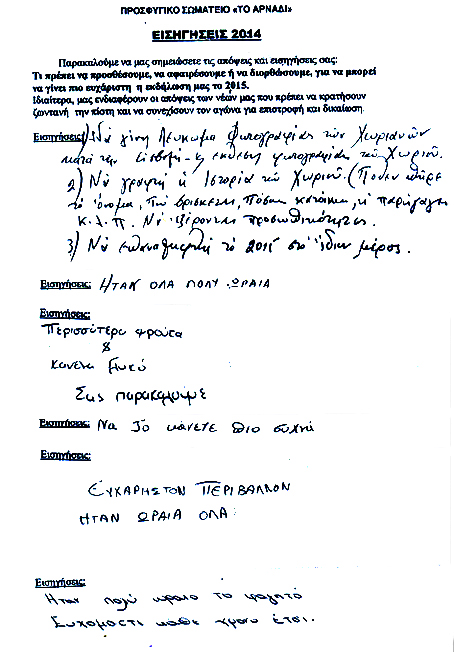 ΠΡΟΣΦΥΓΙΚΟ ΣΩΜΑΤΕΙΟ «ΤΟ ΑΡΝΑΔΙ»
ΕΙΣΗΓΗΣΕΙΣ 2014
Παρακαλούμε να μας σημειώσετε τις απόψεις και εισηγήσεις σας:
Τι πρέπει να προσθέσουμε, να αφαιρέσουμε ή να διορθώσουμε, για να μπορεί
να γίνει πιο ευχάριστη η εκδήλωση μας το 2015.
Ιδιαίτερα, μας ενδιαφέρουν οι απόψεις των νέων μας που πρέπει να κρατήσουν
ζωντανή την πίστη και να συνεχίσουν τον αγώνα για επιστροφή και δικαίωση.
Εισηγήσεις: 1) Νά γίνη Λεύκωμα Φωτογραφίας τών Χωριανών
κατά την Εισβολή - ή έκθεση φωτογραφίας τού Χωριού.
2) Νά γραφτή ή Ιστορία τού Χωριού. (Πόθεν πήρε
τό όνομα, Πού βρίσκεται, Πόσοι κάτοικοι, ή παραγωγή
κ.λ.π. Νά εξέρονται προσωπικότητες.
3) Νά επαναληφθή τό 2015 στό ίδιον μέρος.
Εισηγήσεις: ΗΤΑΝ ΟΛΑ ΠΟΛΥ ΩΡΑΙΑ
Εισηγήσεις:
Περισσότερα φρούτα
&
κανένα Γλυκό
Σας παρακαλούμε
Εισηγήσεις: Να Το κάνετε πιο συχνά
Εισηγήσεις:
ΕΥΧΑΡΗΣΤΟΝ ΠΕΡΙΒΑΛΛΟΝ
ΗΤΑΝ ΩΡΑΙΑ ΟΛΑ
Εισηγήσεις:
Ηταν πολύ ωραιο το φαγητό
Ευχομαστι καθε χρονο έτσι.